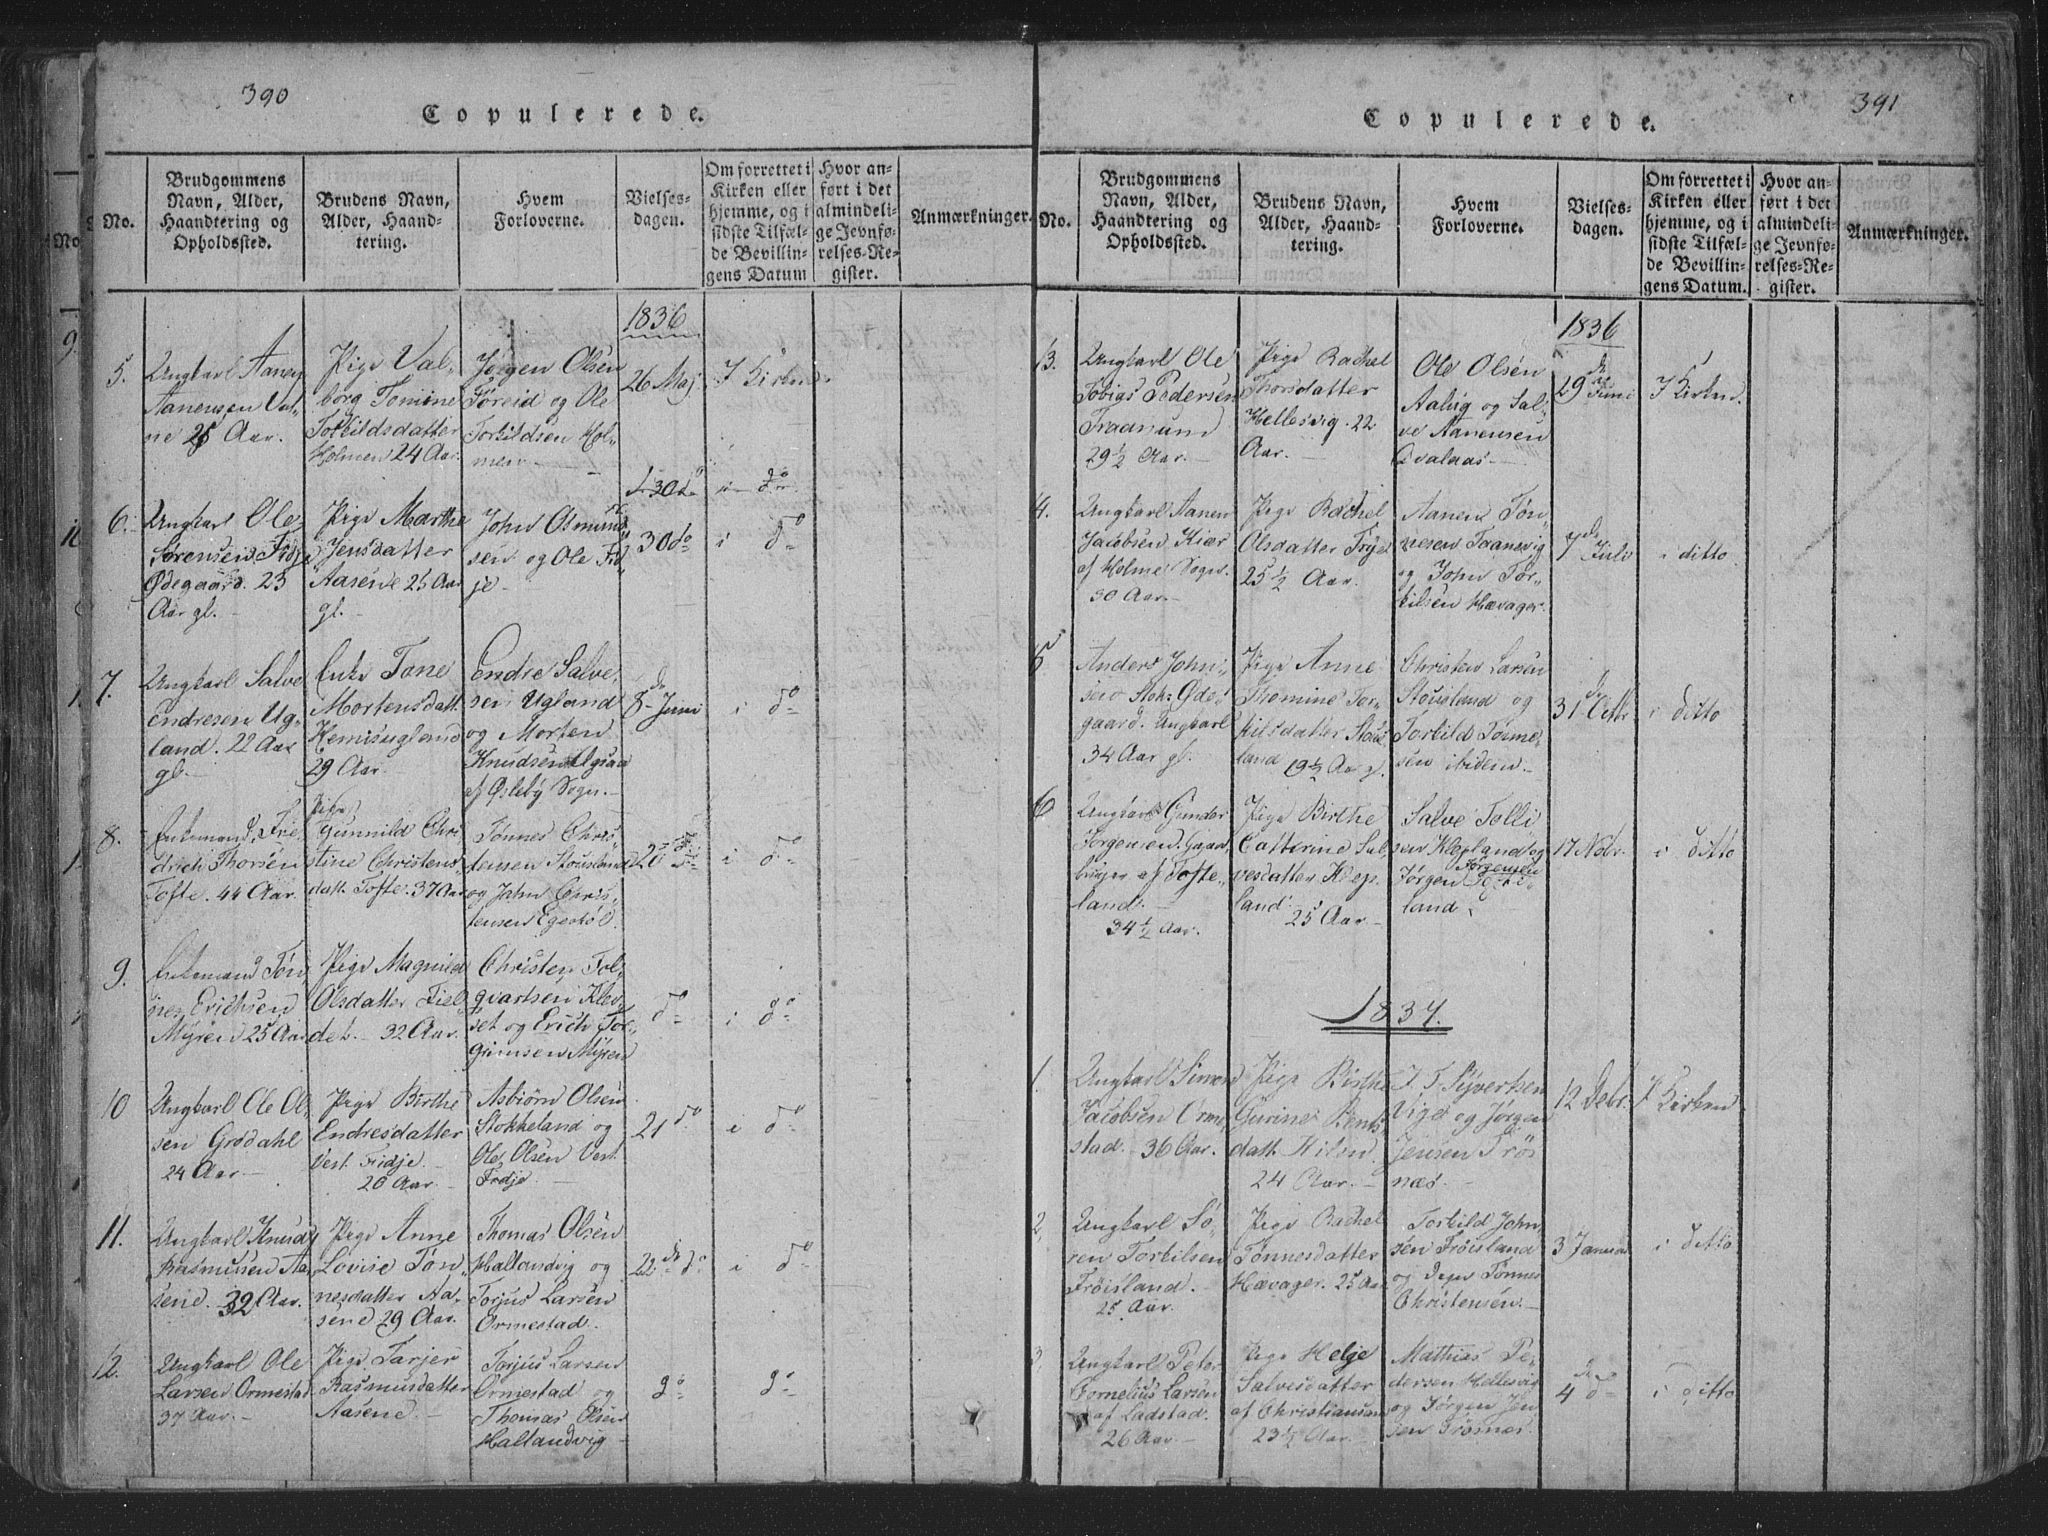 390
Copulerede.
No.
Brudgommens
Navn, Alder,
Haandtering og
Opholdssted.
Brudens Navn,
Alder, Haand-
tering.
Hvem
Forloverne.
Vielses-
dagen.
Om forrettet i
Kirken eller
hjemme, og i
sidste Tilfæl-
de Bevillin-
gens Datum
Hvor an-
ført i det
almindeli-
ge Jevnfø-
relses-Re-
gister.
Anmærkninger.
1836
5.
Ungkarl Aanen
Aanensen
25 Aar.
Pige Val-
borg Tomine
Torkildsdatter
Holmen 24 Aar.
Jørgen Olsen
Føreid og Ole
Torkildsen Hol-
men
26 Maj.
I Kirken
6.
Ungkarl Ole
Sørensen Fidje
Ødegaard. 23
Aar gl.
Pige Marthe
Jensdatter
Aasene 25 Aar
gl.
John Asmund-
sen og Ole Fid-
je
30 do
i do
7.
Ungkarl Salve
Endresen Ug-
land. 22 Aar
gl.
Enke Tone
Mortensdatt.
Hemisugland
29 Aar.
Endre Salve-
sen Ugland
og Morten
Knudsen
af Øslebÿ Sogn.
8 de Juni
i do
8.
Enkemand Frie-
drich Thorsen
Tofte. 44 Aar.
Pige
Gunnild Chri-
stine Christens-
datt. Tofte. 37 Aar
Tønnes Chris-
tensen Stousland
og John Chris-
tensen Egeskoe
20 do
i do
9.
Enkemand Tøn-
nes Erichsen
Mÿren 25 Aar
Pige Magnild
Olsdatter Fiel-
det. 32 Aar.
Christen Tol-
qvartsen Klev-
set og Erich Tor-
gimsen Mÿren
do
i do
10
Ungkarl Ole Ol-
sen Grødahl
24 Aar
Pige Birthe
Endresdatter
Vest. Fidje.
20 Aar.
Asbiörn Olsen
Stokkeland og
Ole Olsen Vest.
Fidje.
21 do
i do
11.
Ungkarl Knud
Rasmusen Aa-
sene. 32 Aar.
Pige Anne
Lovise Tøn-
nesdatter Aa-
sene 29 Aar.
Thomas Olsen
Hallandvig og
Torjus Larsen
Ormestad.
22 de do
i do
12.
Ungkarl Ole
Larsen Ormestad
37 Aar.
Pige Tarjer
Rasmusdatter
Aasene.
Torjus Larsen
Ormestad og
Thomas Olsen
Hallandvig
do
do
391
Copulerede.
No.
Brudgommens
Navn, Alder,
Haandtering og
Opholdssted.
Brudens Navn,
Alder, Haand-
tering.
Hvem
Forloverne.
Vielses-
dagen.
Om forrettet i
Kirken eller
hjemme, og i
sidste Tilfæl-
de Bevillin-
gens Datum.
Hvor an-
ført i det
almindeli-
ge Jevnfø-
relses-Re-
gister.
Anmærkninger.
1836
13.
Ungkarl Ole
Tobias Pedersen
29½ Aar.
Pige Rachel
Thorsdatter
Hellesvig. 22
Aar.
Ole Olsen
Aalug og Sal-
ve Aanensen
Qvalaas
29 de Juni
I Kirken.
4.
Ungkarl Aanen
Jacobsen Kiær
af Holme Sogn.
30 Aar.
Pige Rachel
Olsdatter
25½ Aar.
Aanen Tøn-
nesen
og John Tor-
kilsen Hævager
7 de Juli
i ditto
5
Anders John-
sen Stok: Øde-
gaard. Ungkarl
34 Aar gl.
Pige Anne
Thomine Tor-
kilsdatter Stous-
land 19½ Aar gl.
Christen Larsen
Stousland og
Torkild Tønne-
sen ibidem.
31 Octbr
i ditto
6
Ungkarl Gunder
Jorgensen. Gaar-
bruger af Tofte-
land.
34½ Aar.
Pige Birthe
Catterine Sal-
vesdatter Klep-
land.
25 Aar.
Salve Tolli
sen Klepland og
Jørgen Jørgensen
land.
17 Nobr.
i ditto
1837.
1.
Ungkarl Simon
Jacobsen Orme-
stad. 36 Aar.
Pige Birthe
Gurine Bents-
datt.
24 Aar.
T. Syvertsen
Vige og Jørgen
Jensen Trös
næs.
12 Debr.
I Kirken
2.
Ungkarl Sö-
ren Torkilsen
Fröisland.
25 Aar.
Pige Rachel
Tønnesdatter
Hævager. 25 Aar
Torkild John-
sen Fröisland
og Tønnes
Christensen.
3 Januar
i ditto
3.
Ungkarl Peter
Cornelius Larsen
af Ladstad.
26 Aar.
Pige Helje
Salvesdatter
af Christiansand
23½ Aar.
Mathias Pe-
dersen Hellesvig
og Jørgen Jen
sen Trösnæs.
4 de do
i ditto